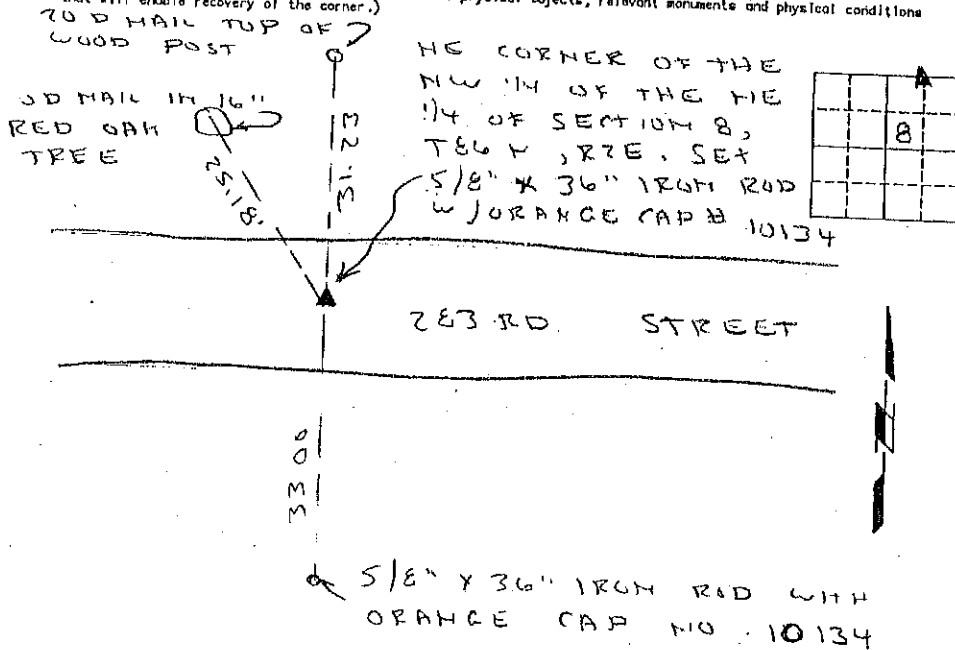 that will enable recovery of the corner.) physical objects, relevant monuments and physical conditions
20 D NAIL TOP OF
WOOD POST
D NAIL IN 16"
RED OAK
TREE
25.18'
31.23
NE CORNER OF THE
NW 1/4 OF THE NE
1/4 OF SECTION 8,
T86N, R2E. SET
5/8" X 36" IRON ROD
W/ORANGE CAP # 10134
8
283 RD. STREET
33.00
5/8" X 36" IRON ROD WITH
ORANGE CAP NO. 10134